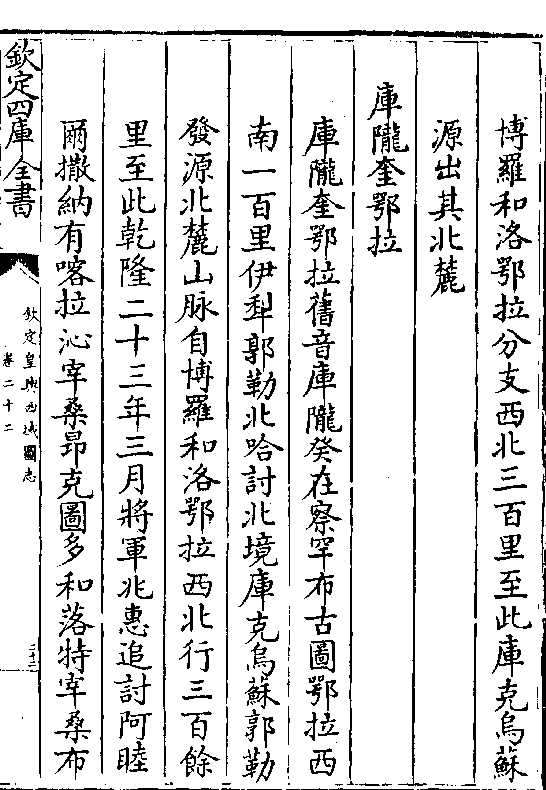 博羅和洛鄂拉分支西北三百里至此庫克烏蘇
源出其北麓
庫隴奎鄂拉
庫隴奎鄂拉舊音庫隴癸在察罕布古圖鄂拉西
南一百里伊犁郭勒北哈討北境庫克烏蘇郭勒
發源北麓山脉自博羅和洛鄂拉西北行三百餘
里至此乾隆二十三年三月將軍兆惠追討阿睦
爾撒納有喀拉沁宰桑昂克圖多和落特宰桑布
欽定四庫全書
欽定皇輿西域圖志
卷二十二
二十二